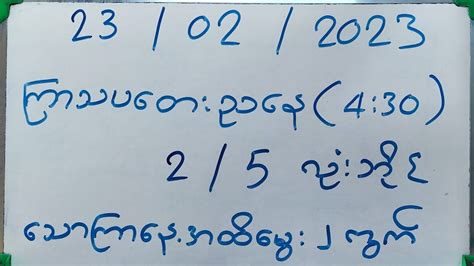 23 / 02 / 2023
ကြာသပတေးညနေ (4:30)
2 / 5 လုံးဘိုင်
သောကြာနေ့အထိမွေး ၂ ကွက်